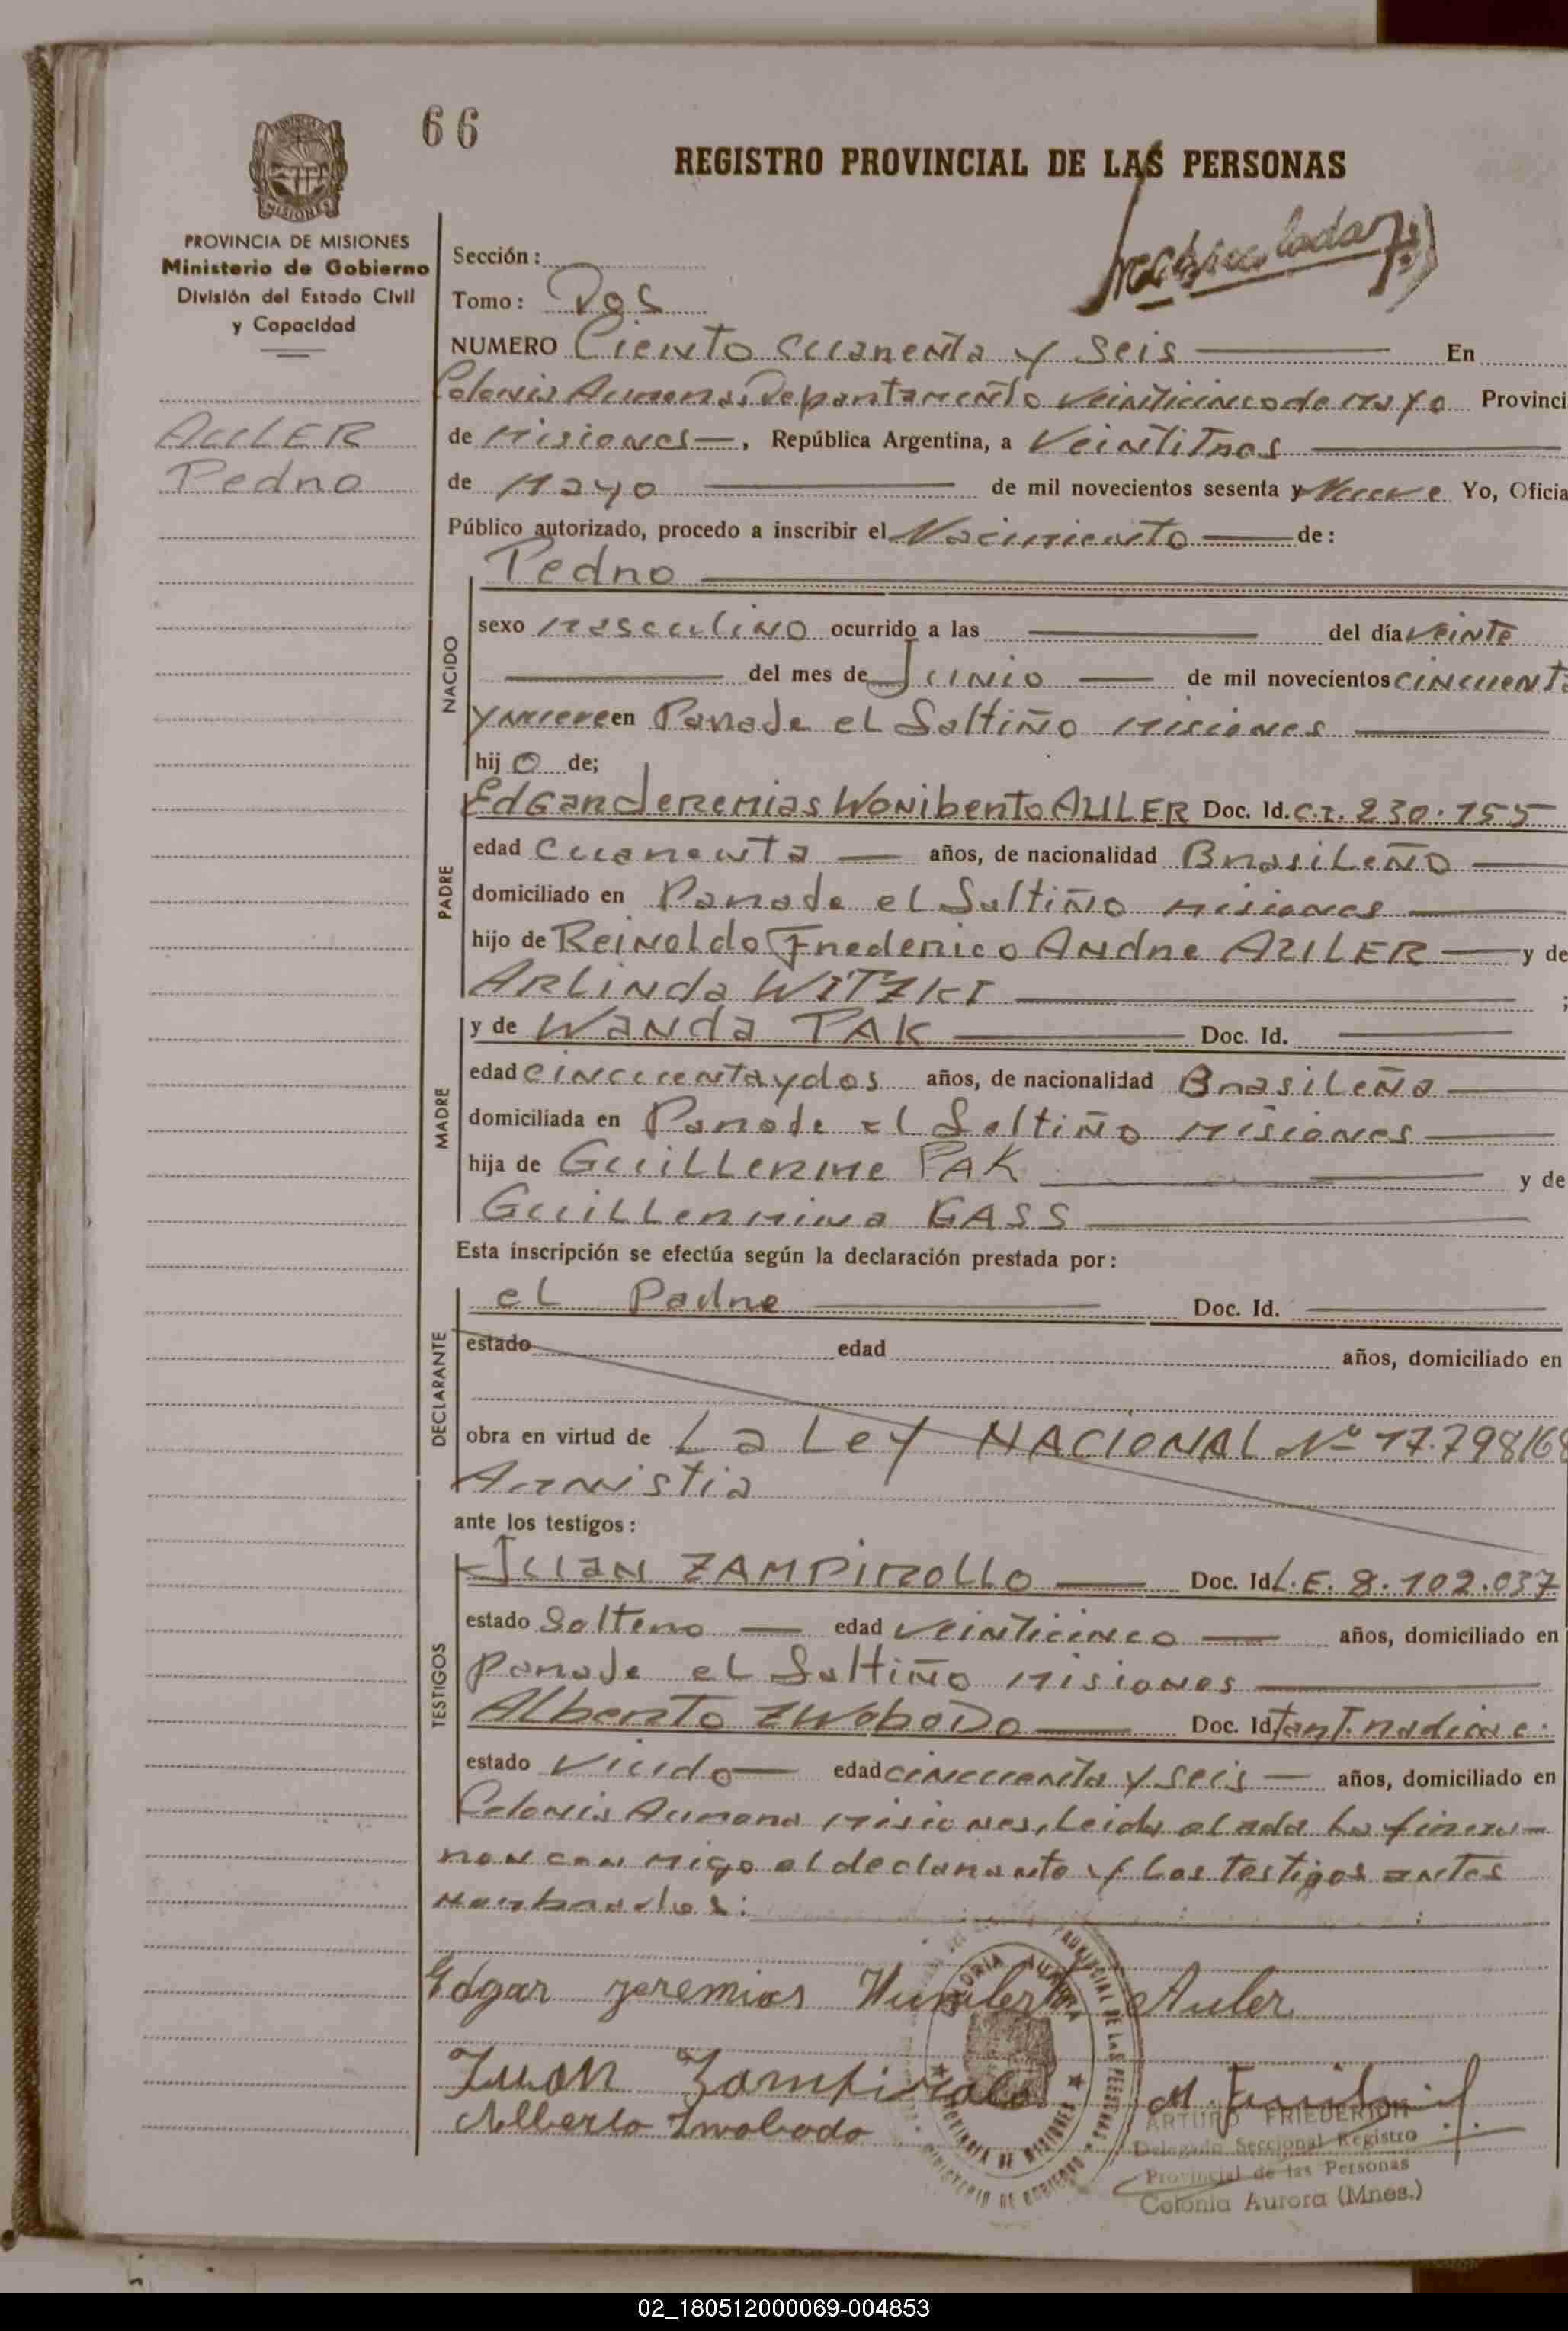 66
REGISTRO PROVINCIAL DE LAS PERSONAS
MISIONES
PROVINCIA DE MISIONES
Ministerio de Gobierno
División del Estado Civil
y Capacidad
Sección:
Tomo: Dos
NUMERO Ciento cuarenta y seis En
Colonia Aurora, Departamento Veinticinco de mayo Provinci
AULER
Pedro
de Misiones, República Argentina, a Veintitres
de Mayo de mil novecientos sesenta y Nueve Yo, Oficia
Público autorizado, procedo a inscribir el Nacimiento de:
Pedro
NACIDO
sexo masculino ocurrido a las del día veinte
del mes de Junio de mil novecientos cincuenta
y nueve en Parade el Saltiño Misiones
hijo de;
PADRE
Edgar Jeremias Wonibento AULER Doc. Id. C.I. 230.155
edad Cuarenta años, de nacionalidad Brasileño
domiciliado en Parade el Saltiño misiones
hijo de Reinoldo Frederico Andre AULER y de
ARLinda WITZKI ;
MADRE
y de Wanda PAK Doc. Id.
edad cincuenta y dos años, de nacionalidad Brasileña
domiciliada en Parade el Saltiño Misiones
hija de Guillerme PAK y de
Guillermina GASS
Esta inscripción se efectúa según la declaración prestada por:
DECLARANTE
el Padre Doc. Id.
estado edad años, domiciliado en
obra en virtud de La Ley NACIONAL Nº 17.798/68
Amnistia
ante los testigos:
TESTIGOS
Juan ZAMPIROLLO Doc. Id L.E. 8.102.037
estado Soltero edad veinticinco años, domiciliado en
Parade el Saltiño Misiones
Alberto ZWOBODO Doc. Id
estado Viudo edad cincuenta y seis años, domiciliado en
Colonia Aurora Misiones, Leida el acta la firma-
ron con migo el declarante y los testigos antes
nombrados:
Edgar Jeremias Humberto Auler
Juan Zampirolo
Alberto Zwobodo
ARTURO FRIEDERICH
Delegado Seccional Registro
Provincial de las Personas
Colonia Aurora (Mnes.)
02_180512000069-004853